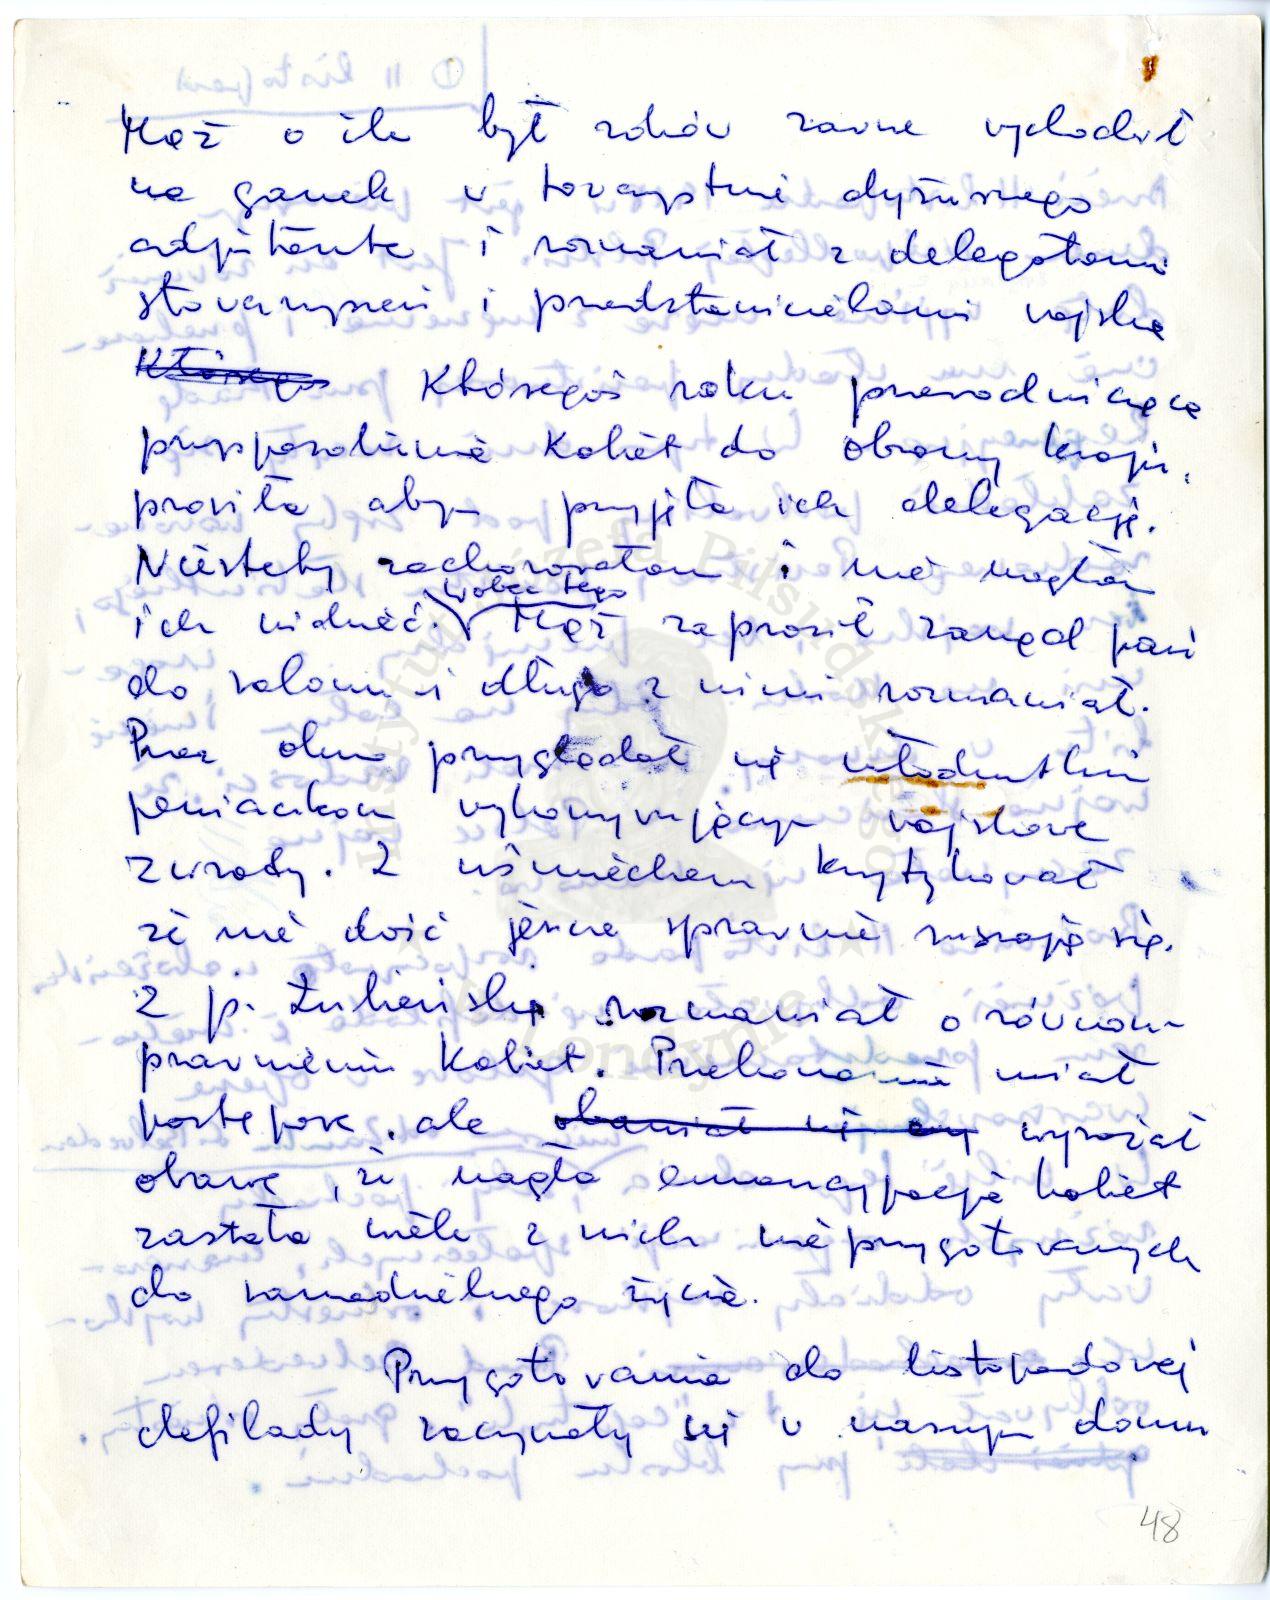 Mąż o ile był zdrów zawsze wychodził
na ganek w towarzystwie dyżurnego
adjutanta i rozmawiał z delegatami
stowarzyszeń i przedstawicielami wojska
Któregoś Któregoś roku przewodnicząca
przysposobienia Kobiet do obrony kraju,
prosiła abym przyjęła ich delegację.
Niestety zachorowałam i nie mogłam
ich widzieć. wobec tego Mąż zaprosił zarząd pań
do salonu i długo z nimi rozmawiał.
Przez okno przyglądał się młodziutkim
peowiaczkom wykonywującym wojskowe
zwroty. Z uśmiechem krytykował
że nie dość jeszcze sprawnie ruszają się.
Z p. Żulińską rozmawiał o równou-
prawnieniu Kobiet. Przekonania miał
postępowe, ale obawiał się czy wyrażał
obawę, że nagła emancypacja kobiet
zastała wiele z nich nieprzygotowanych
do samodzielnego życia.
Przygotowania do listopadowej
defilady zaczynały się w naszym domu
48
Instytut Józefa Piłsudskiego
w Londynie